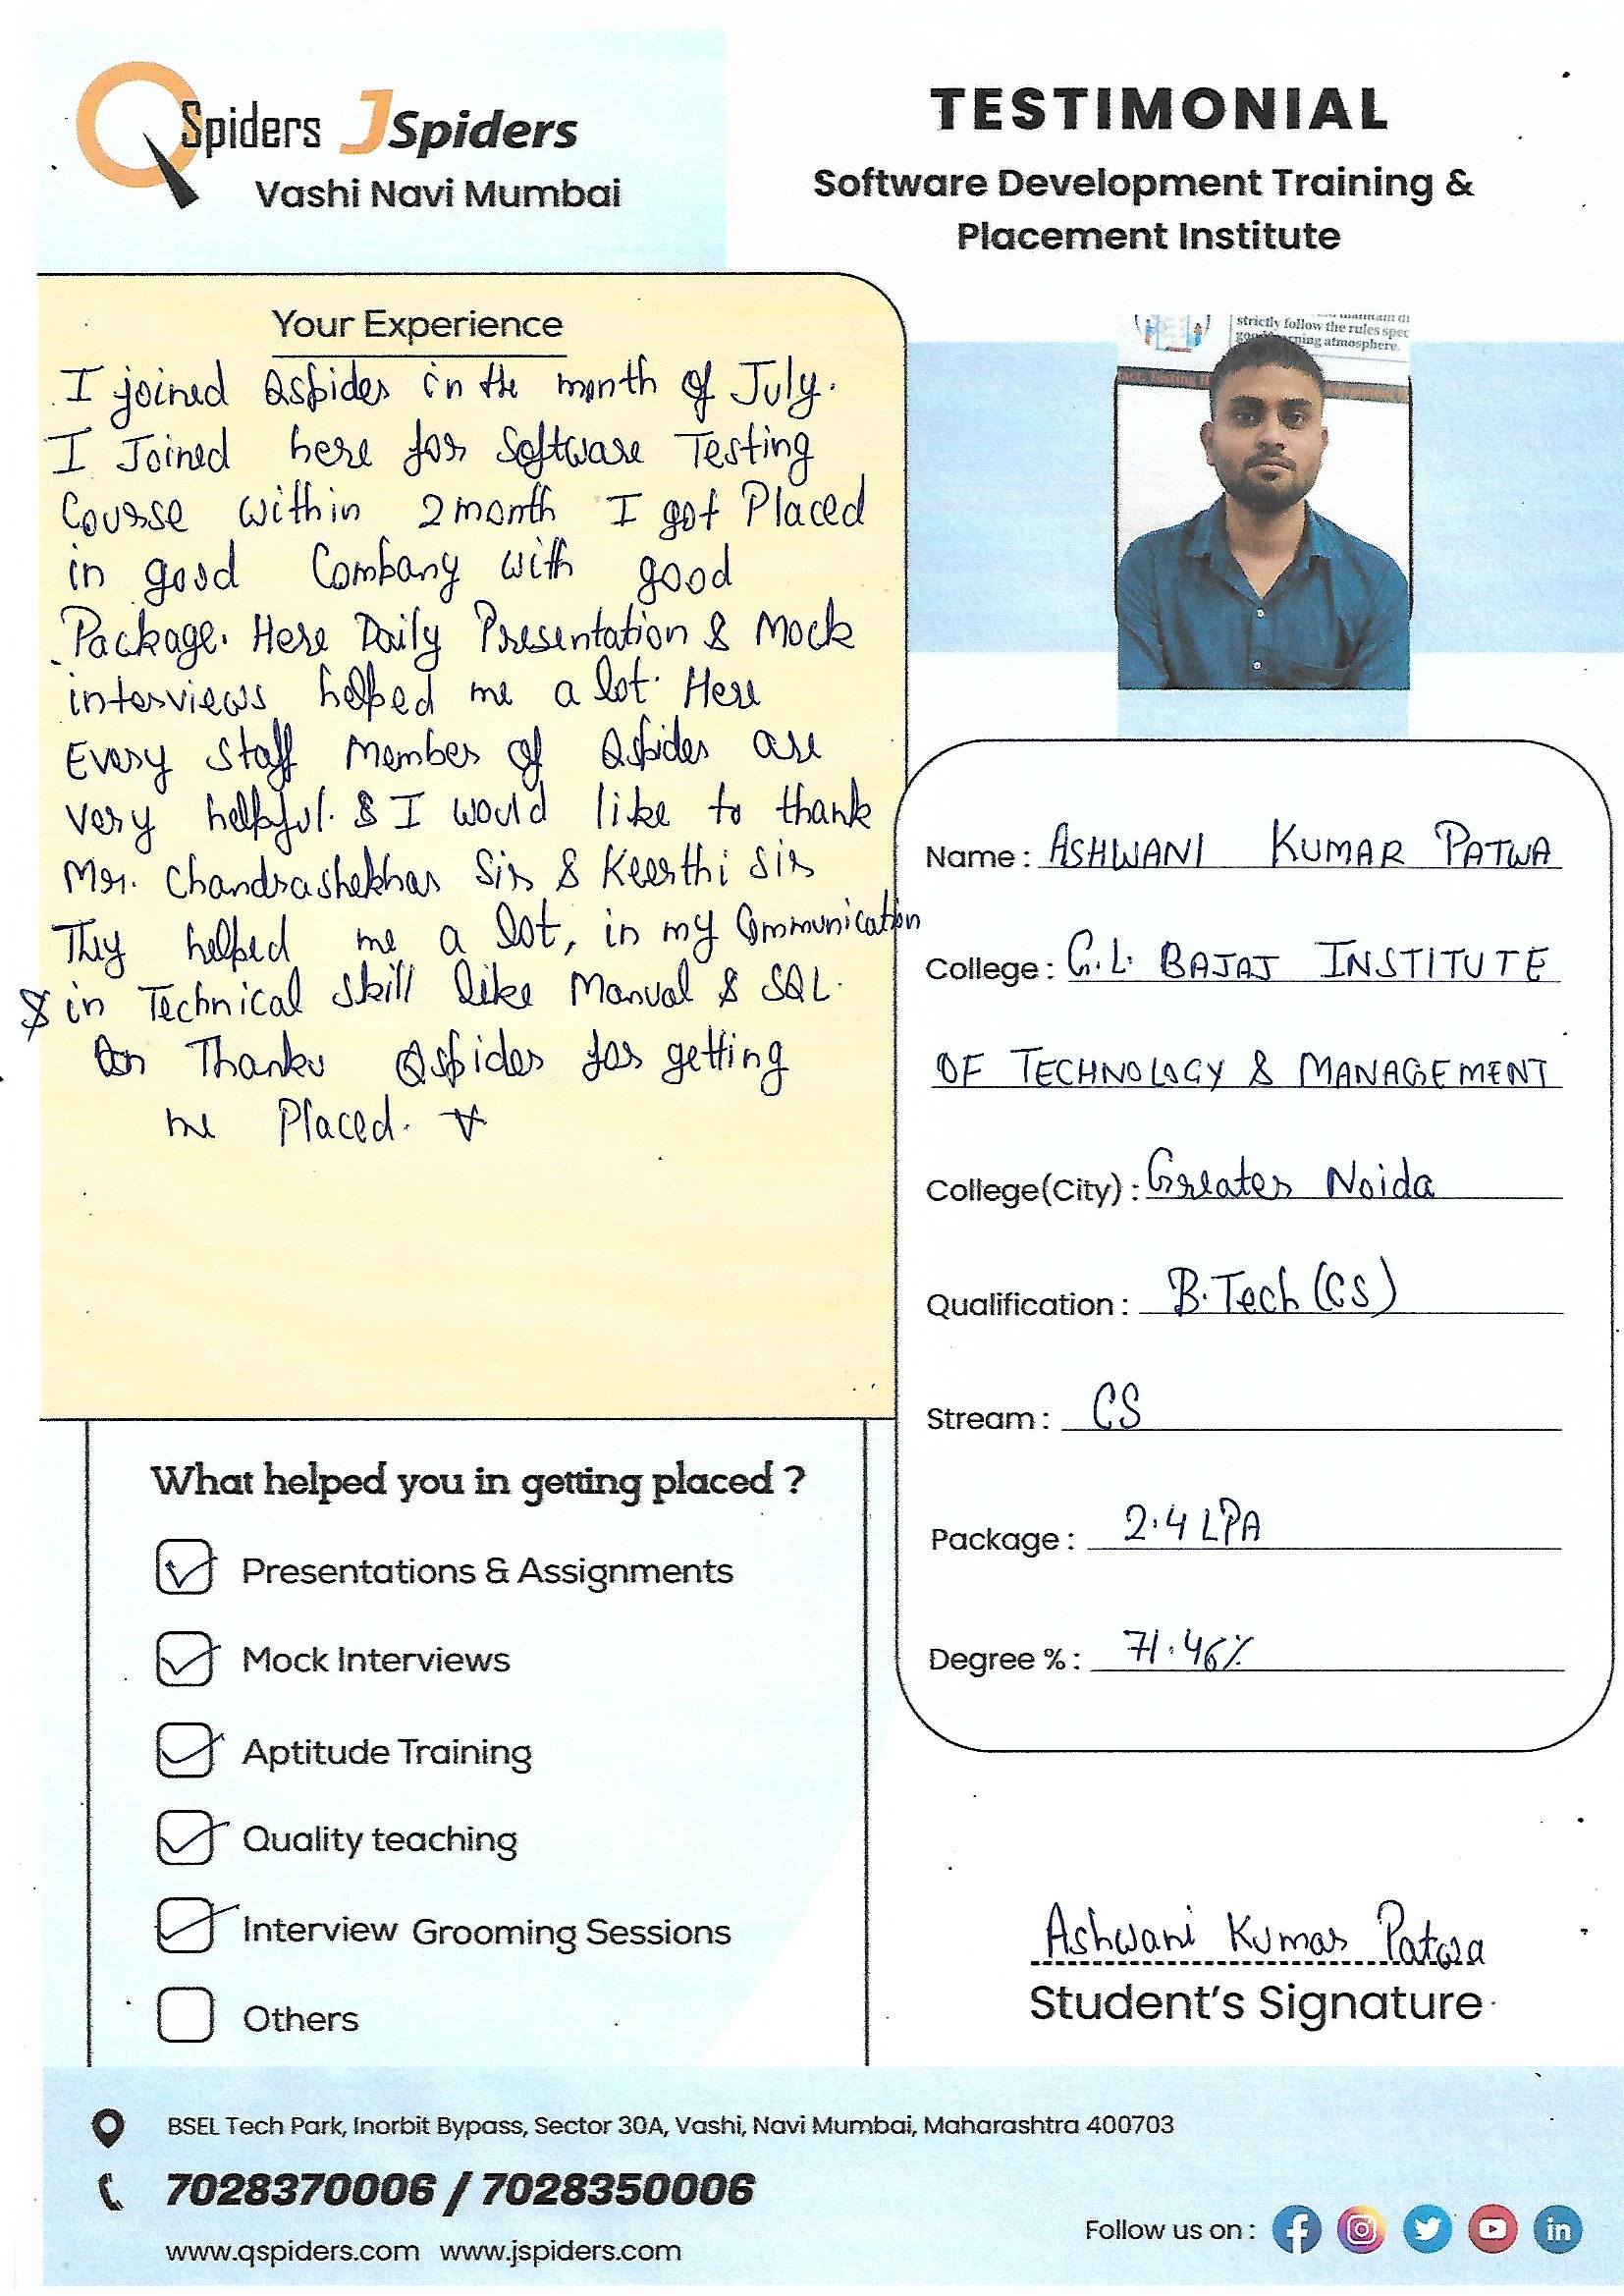 QSpiders JSpiders
Vashi Navi Mumbai
TESTIMONIAL
Software Development Training &
Placement Institute
strictly follow the rules spec
atmosphere.
Your Experience
I joined Qspider in the month of July.
I Joined here for Software Testing
Course within 2 month I got Placed
in good Company with good
Package. Here Daily Presentation & Mock
interviews helped me a lot. Here
Every Staff Member of Qspider are
very helpful. & I would like to thank
Mr. Chandrashekhar Sir & Keerthi Sir
They helped me a lot, in my Communication
& in Technical skill like Manual & SQL.
Thanku Qspider for getting
me Placed.
Name : ASHWANI KUMAR PATWA
College : G.L. BAJAJ INSTITUTE
OF TECHNOLOGY & MANAGEMENT
College(City) : Greater Noida
Qualification : B.Tech (CS)
Stream : CS
Package : 2.4 LPA
Degree % : 71.46%
What helped you in getting placed ?
Presentations & Assignments
Mock Interviews
Aptitude Training
Quality teaching
Interview Grooming Sessions
Others
Ashwani Kumar Patwa
Student's Signature
BSEL Tech Park, Inorbit Bypass, Sector 30A, Vashi, Navi Mumbai, Maharashtra 400703
7028370006 / 7028350006
www.qspiders.com www.jspiders.com
Follow us on :